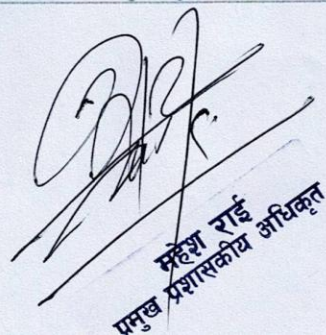 महेश राई
प्रमुख प्रशासकीय अधिकृत